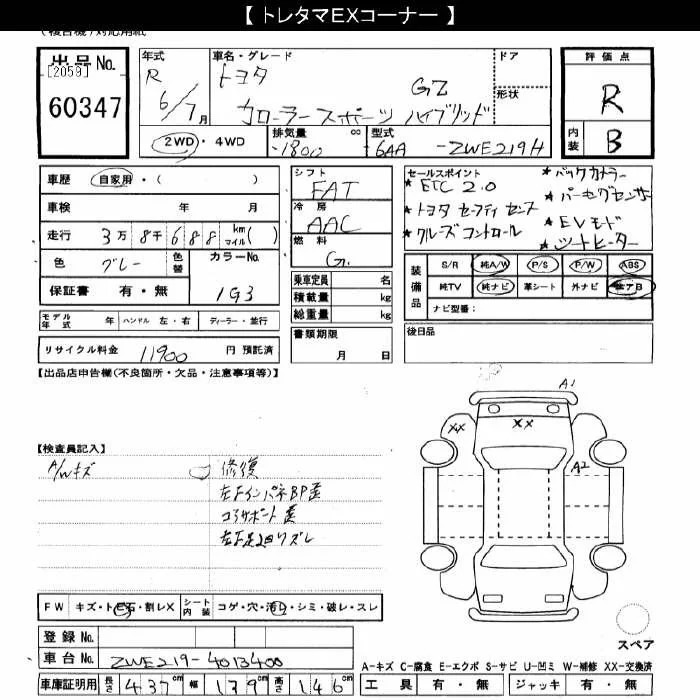 【 トレタマEXコーナー 】
(複合機/対応用紙
出品No.
[2059]
60347
年式
R
6/7月
車名・グレード
トヨタ GZ
カローラースポーツ ハイブリッド
ドア
形状
評価点
R
内装
B
2WD・4WD
排気量 cc
1800
型式
6AA - ZWE219H
車歴 自家用・( )
車検 年 月
走行 3万 8千 6 8 8 km マイル( )
色 グレー 色替
カラーNo.
1G3
保証書 有・無
シフト
FAT
冷房
AAC
燃料
G.
乗車定員 名
積載量 kg
総重量 kg
セールスポイント
★ ETC 2.0
★ トヨタ セーフティ センス
★ クルーズ コントロール
★ バックカメラー
★ パーキングセンサー
★ EVモード
★ シートヒーター
装備品
S/R 純A/W P/S P/W ABS
純TV 純ナビ 革シート 外ナビ エアB
ナビ型番:
モデル年式 年 ハンドル 左・右 ディーラー・並行
書類期限
月 日
後日品
リサイクル料金 11900 円 預託済
【出品店申告欄(不良箇所・欠品・注意事項等)】
【検査員記入】
A/Wキズ
修復
左Fインパネ BP歪
コアサポート歪
A1
XX
XX
A2
FW キズ・トビ石・割レX
シート内装 コゲ・穴・汚レ・シミ・破レ・スレ
登録No.
車台No. ZWE219-4013400
車庫証明用 長さ 437cm 幅 179cm 高さ 146cm
スペア
A-キズ C-腐食 E-エクボ S-サビ U-凹ミ W-補修 XX-交換済
工具 有・無 ジャッキ 有・無